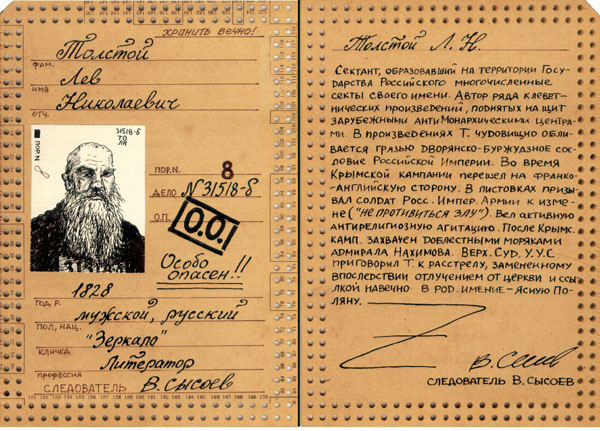 ХРАНИТЬ ВЕЧНО!
Толстой
ФАМ.
Лев
ИМЯ
Николаевич
ОТЧ.
31518-б
ТОЛЯ
ПОР. N
8
ПОР.N. 8
ДЕЛО N 31518-б
О.П.
О.О.!
Особо
опасен!!
1828
ГОД Р.
мужской, русский
ПОЛ, НАЦ.
"Зеркало"
КЛИЧКА
Литератор
ПРОФЕССИЯ
СЛЕДОВАТЕЛЬ В. Сысоев
Толстой Л. Н.
Сектант, образовавший на территории Госу
дарства Российского многочисленные
секты своего имени. Автор ряда клевет-
нических произведений, поднятых на щит
зарубежными антимонархическими центра-
ми. В произведениях Т. чудовищно обли-
вается грязью дворянско-буржуазное со-
словие Российской Империи. Во время
Крымской кампании перешел на франко-
английскую сторону. В листовках призы-
вал солдат Росс. Импер. Армии к изме-
не ("не противиться злу"). Вел активную
антирелигиозную агитацию. После Крымс.
камп. захвачен доблестными моряками
адмирала Нахимова. Верх. Суд. У.У.С
приговорил Т. к расстрелу, замененному
впоследствии отлучением от церкви и ссы
лкой навечно в род. имение-Ясную По-
ляну.
СЛЕДОВАТЕЛЬ В. СЫСОЕВ